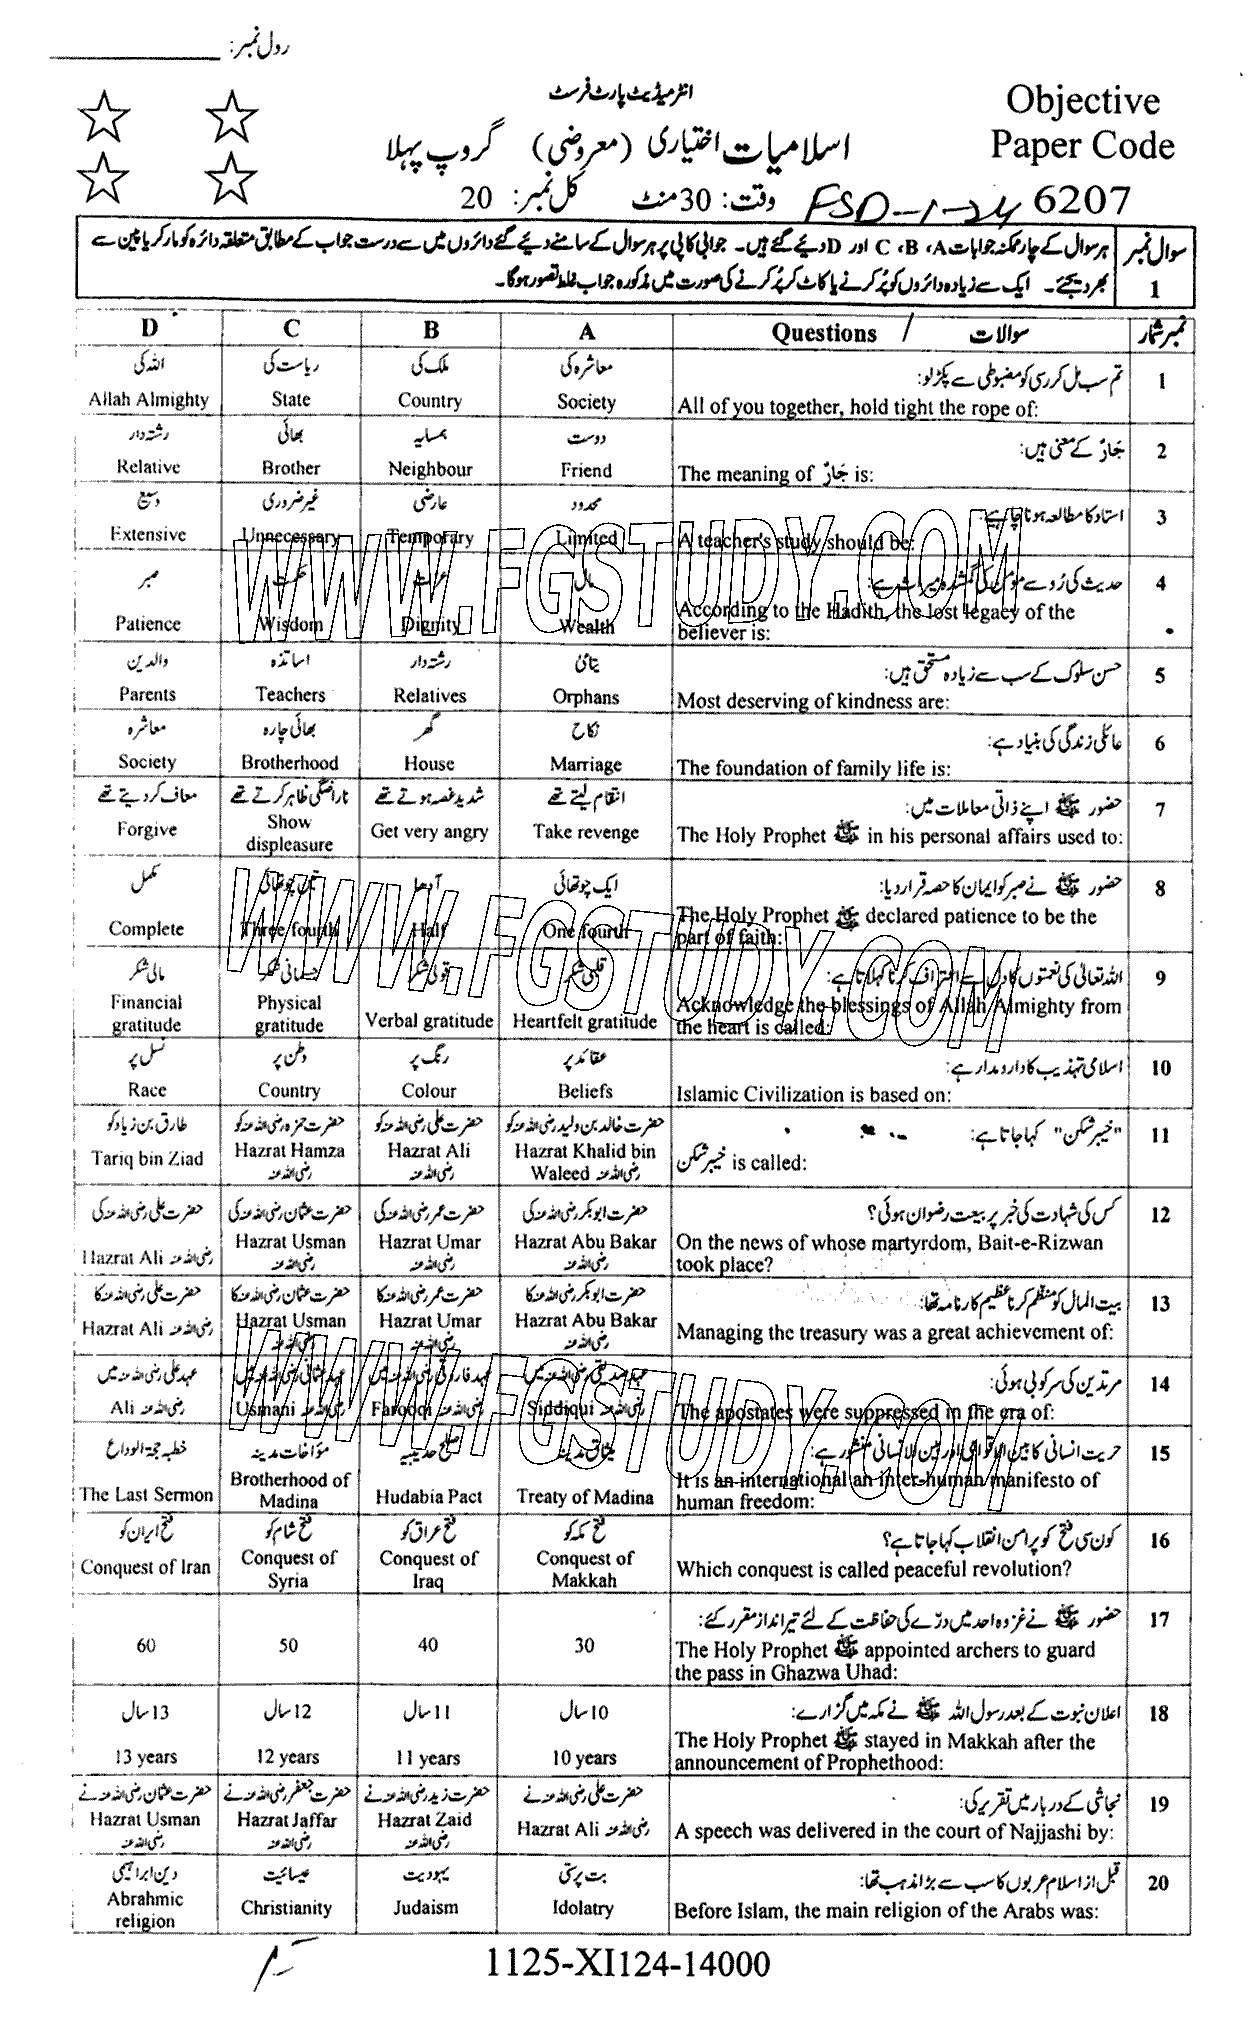 رول نمبر: ____________
انٹرمیڈیٹ پارٹ فرسٹ
Objective
Paper Code
اسلامیات اختیاری (معروضی) گروپ پہلا
6207 FSD-1-24 وقت: 30 منٹ کل نمبر: 20
سوال نمبر 1
ہر سوال کے چار ممکنہ جوابات A، B، C اور D دیئے گئے ہیں۔ جوابی کاپی پر ہر سوال کے سامنے دیئے گئے دائروں میں سے درست جواب کے مطابق متعلقہ دائرہ کو مارکر یا پین سے
بھر دیجئے۔ ایک سے زیادہ دائروں کو پُر کرنے یا کاٹ کر پُر کرنے کی صورت میں مذکورہ جواب غلط تصور ہوگا۔
نمبر شمار سوالات / Questions A B C D
1 تم سب مل کر رسی کو مضبوطی سے پکڑ لو: معاشرہ کی ملک کی ریاست کی اللہ کی
All of you together, hold tight the rope of: Society Country State Allah Almighty
2 جَارٌ کے معنی ہیں: دوست ہمسایہ بھائی رشتہ دار
The meaning of جَارٌ is: Friend Neighbour Brother Relative
3 استاد کا مطالعہ ہونا چاہیے: محدود عارضی غیر ضروری وسیع
A teacher's study should be: Limited Temporary Unnecessary Extensive
4 حدیث کی رُو سے مومن کی گمشدہ میراث ہے: مال عزت حکمت صبر
According to the Hadith, the lost legacy of the
believer is: Wealth Dignity Wisdom Patience
5 حسن سلوک کے سب سے زیادہ مستحق ہیں: یتامیٰ رشتہ دار اساتذہ والدین
Most deserving of kindness are: Orphans Relatives Teachers Parents
6 عائلی زندگی کی بنیاد ہے: نکاح گھر بھائی چارہ معاشرہ
The foundation of family life is: Marriage House Brotherhood Society
7 حضور ﷺ اپنے ذاتی معاملات میں: انتقام لیتے تھے شدید غصہ ہوتے تھے ناراضگی ظاہر کرتے تھے معاف کر دیتے تھے
The Holy Prophet ﷺ in his personal affairs used to: Take revenge Get very angry Show displeasure Forgive
8 حضور ﷺ نے صبر کو ایمان کا حصہ قرار دیا: ایک چوتھائی آدھا تین چوتھائی مکمل
The Holy Prophet ﷺ declared patience to be the
part of faith: One fourth Half Three fourth Complete
9 اللہ تعالیٰ کی نعمتوں کا دل سے اعتراف کرنا کہلاتا ہے: قلبی شکر قولی شکر جسمانی شکر مالی شکر
Acknowledge the blessings of Allah Almighty from
the heart is called: Heartfelt gratitude Verbal gratitude Physical gratitude Financial gratitude
10 اسلامی تہذیب کا دارومدار ہے: عقائد پر رنگ پر وطن پر نسل پر
Islamic Civilization is based on: Beliefs Colour Country Race
11 "خیبر شکن" کہا جاتا ہے: حضرت خالد بن ولید رضی اللہ عنہ کو حضرت علی رضی اللہ عنہ کو حضرت حمزہ رضی اللہ عنہ کو طارق بن زیاد کو
خیبر شکن is called: Hazrat Khalid bin Waleed رضی اللہ عنہ Hazrat Ali رضی اللہ عنہ Hazrat Hamza رضی اللہ عنہ Tariq bin Ziad
12 کس کی شہادت کی خبر پر بیعت رضوان ہوئی؟ حضرت ابوبکر رضی اللہ عنہ کی حضرت عمر رضی اللہ عنہ کی حضرت عثمان رضی اللہ عنہ کی حضرت علی رضی اللہ عنہ کی
On the news of whose martyrdom, Bait-e-Rizwan
took place? Hazrat Abu Bakar رضی اللہ عنہ Hazrat Umar رضی اللہ عنہ Hazrat Usman رضی اللہ عنہ Hazrat Ali رضی اللہ عنہ
13 بیت المال کو منظم کرنا عظیم کارنامہ تھا: حضرت ابوبکر رضی اللہ عنہ کا حضرت عمر رضی اللہ عنہ کا حضرت عثمان رضی اللہ عنہ کا حضرت علی رضی اللہ عنہ کا
Managing the treasury was a great achievement of: Hazrat Abu Bakar رضی اللہ عنہ Hazrat Umar رضی اللہ عنہ Hazrat Usman رضی اللہ عنہ Hazrat Ali رضی اللہ عنہ
14 مرتدین کی سرکوبی ہوئی: عہد صدیقی رضی اللہ عنہ میں عہد فاروقی رضی اللہ عنہ میں عہد عثمانی رضی اللہ عنہ میں عہد علی رضی اللہ عنہ میں
The apostates were suppressed in the era of: Siddiqui رضی اللہ عنہ Farooqi رضی اللہ عنہ Usmani رضی اللہ عنہ Ali رضی اللہ عنہ
15 حریت انسانی کا بین الاقوامی اور بین الانسانی منشور ہے: میثاق مدینہ صلح حدیبیہ مؤاخات مدینہ خطبہ حجۃ الوداع
It is an international an inter-human manifesto of
human freedom: Treaty of Madina Hudabia Pact Brotherhood of Madina The Last Sermon
16 کون سی فتح کو پرامن انقلاب کہا جاتا ہے؟ فتح مکہ کو فتح عراق کو فتح شام کو فتح ایران کو
Which conquest is called peaceful revolution? Conquest of Makkah Conquest of Iraq Conquest of Syria Conquest of Iran
17 حضور ﷺ نے غزوہ احد میں درّے کی حفاظت کے لئے تیر انداز مقرر کئے:
The Holy Prophet ﷺ appointed archers to guard
the pass in Ghazwa Uhad: 30 40 50 60
18 اعلان نبوت کے بعد رسول اللہ ﷺ نے مکہ میں گزارے: 10 سال 11 سال 12 سال 13 سال
The Holy Prophet ﷺ stayed in Makkah after the
announcement of Prophethood: 10 years 11 years 12 years 13 years
19 نجاشی کے دربار میں تقریر کی: حضرت علی رضی اللہ عنہ نے حضرت زید رضی اللہ عنہ نے حضرت جعفر رضی اللہ عنہ نے حضرت عثمان رضی اللہ عنہ نے
A speech was delivered in the court of Najjashi by: Hazrat Ali رضی اللہ عنہ Hazrat Zaid رضی اللہ عنہ Hazrat Jaffar رضی اللہ عنہ Hazrat Usman رضی اللہ عنہ
20 قبل از اسلام عربوں کا سب سے بڑا مذہب تھا: بت پرستی یہودیت عیسائیت دین ابراہیمی
Before Islam, the main religion of the Arabs was: Idolatry Judaism Christianity Abrahmic religion
1125-XI124-14000
WWW.FGSTUDY.COM
WWW.FGSTUDY.COM
WWW.FGSTUDY.COM